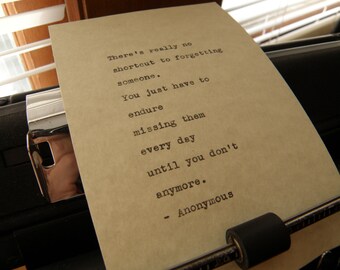 There's really no
shortcut to forgetting
someone.
You just have to
endure
missing them
every day
until you don't
anymore.
- Anonymous